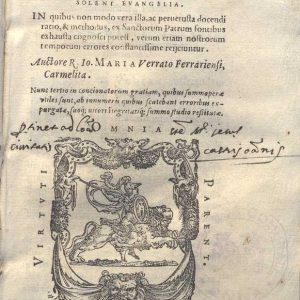 SOLENT EVANGELIA.
IN quibus non modo vera illa, ac peruetusta docendi
ratio, & methodus, ex Sanctorum Patrum fontibus
exhausta cognosci potest, verum etiam nostrorum
temporum errores constantissime reijciuntur.
Auctore R. Io. MARIA Verrato Ferrariensi,
Carmelita.
Nunc tertio in concionatorum gratiam, quibus summopere
vtiles sunt, ab innumeris quibus scatebant erroribus ex-
purgatæ, suoq; nitori
summo studio restitutæ.
OMNIA
VIRTVTI
PARENT.